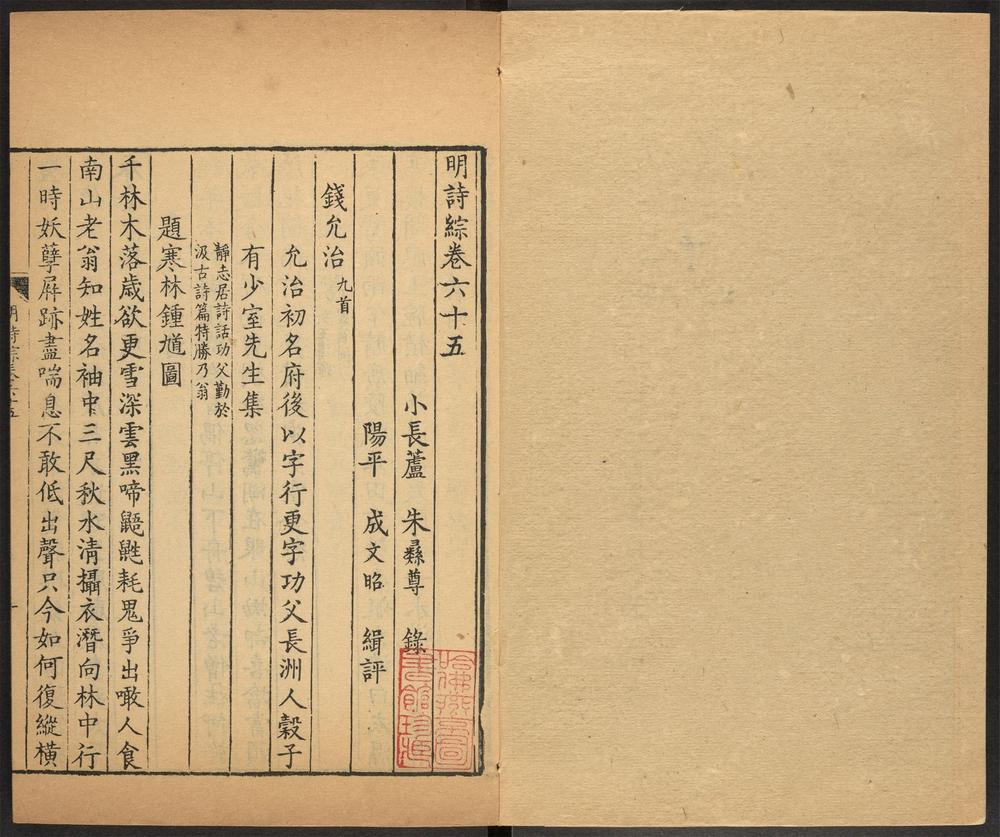 明詩綜卷六十五
小長蘆 朱彝尊 錄
陽平 成文昭 緝評
錢允治 九首
允治初名府後以字行更字功父長洲人穀子
有少室先生集
靜志居詩話功父勤於
汲古詩篇特勝乃翁
題寒林鍾馗圖
千林木落歲欲更雪深雲黑啼鼯鼪耗鬼爭出噉人食
南山老翁知姓名袖中三尺秋水清攝衣潛向林中行
一時妖孽屛跡盡喘息不敢低出聲只今如何復縱橫
明詩綜卷六十五
一
哈佛燕京圖
書館珍藏